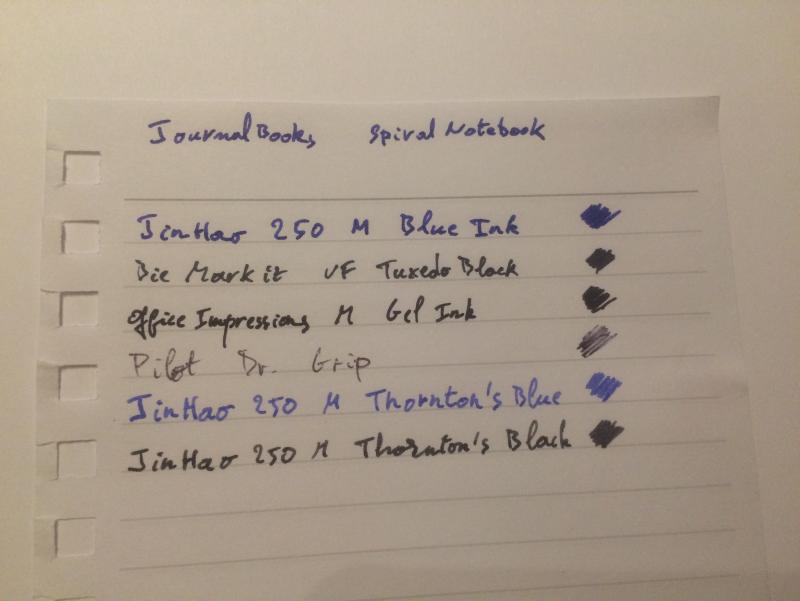 JournalBooks Spiral Notebook
JinHao 250 M Blue Ink
Bic Mark it UF Tuxedo Black
Office Impressions M Gel Ink
Pilot Dr. Grip
JinHao 250 M Thornton's Blue
JinHao 250 M Thornton's Black